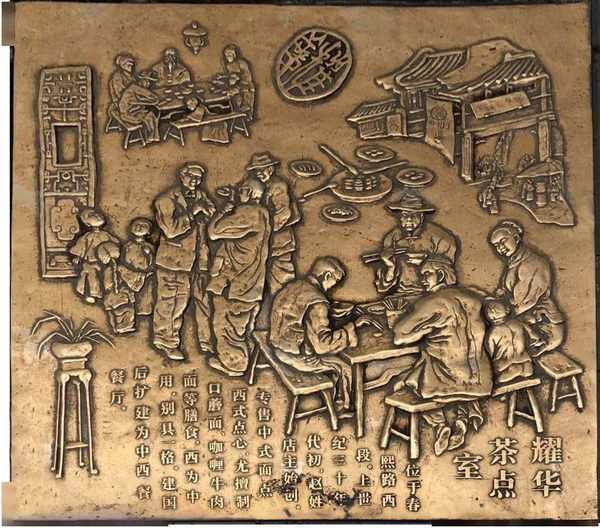 耀华
茶点
室
位于春
熙路西
段,上世
纪三十年
代初,赵姓
店主始创,
专售中式面点
西式点心,尤擅制
口蘑面,咖喱牛肉
面等膳食,西为中
用,别具一格,建国
后扩建为中西餐
餐厅。